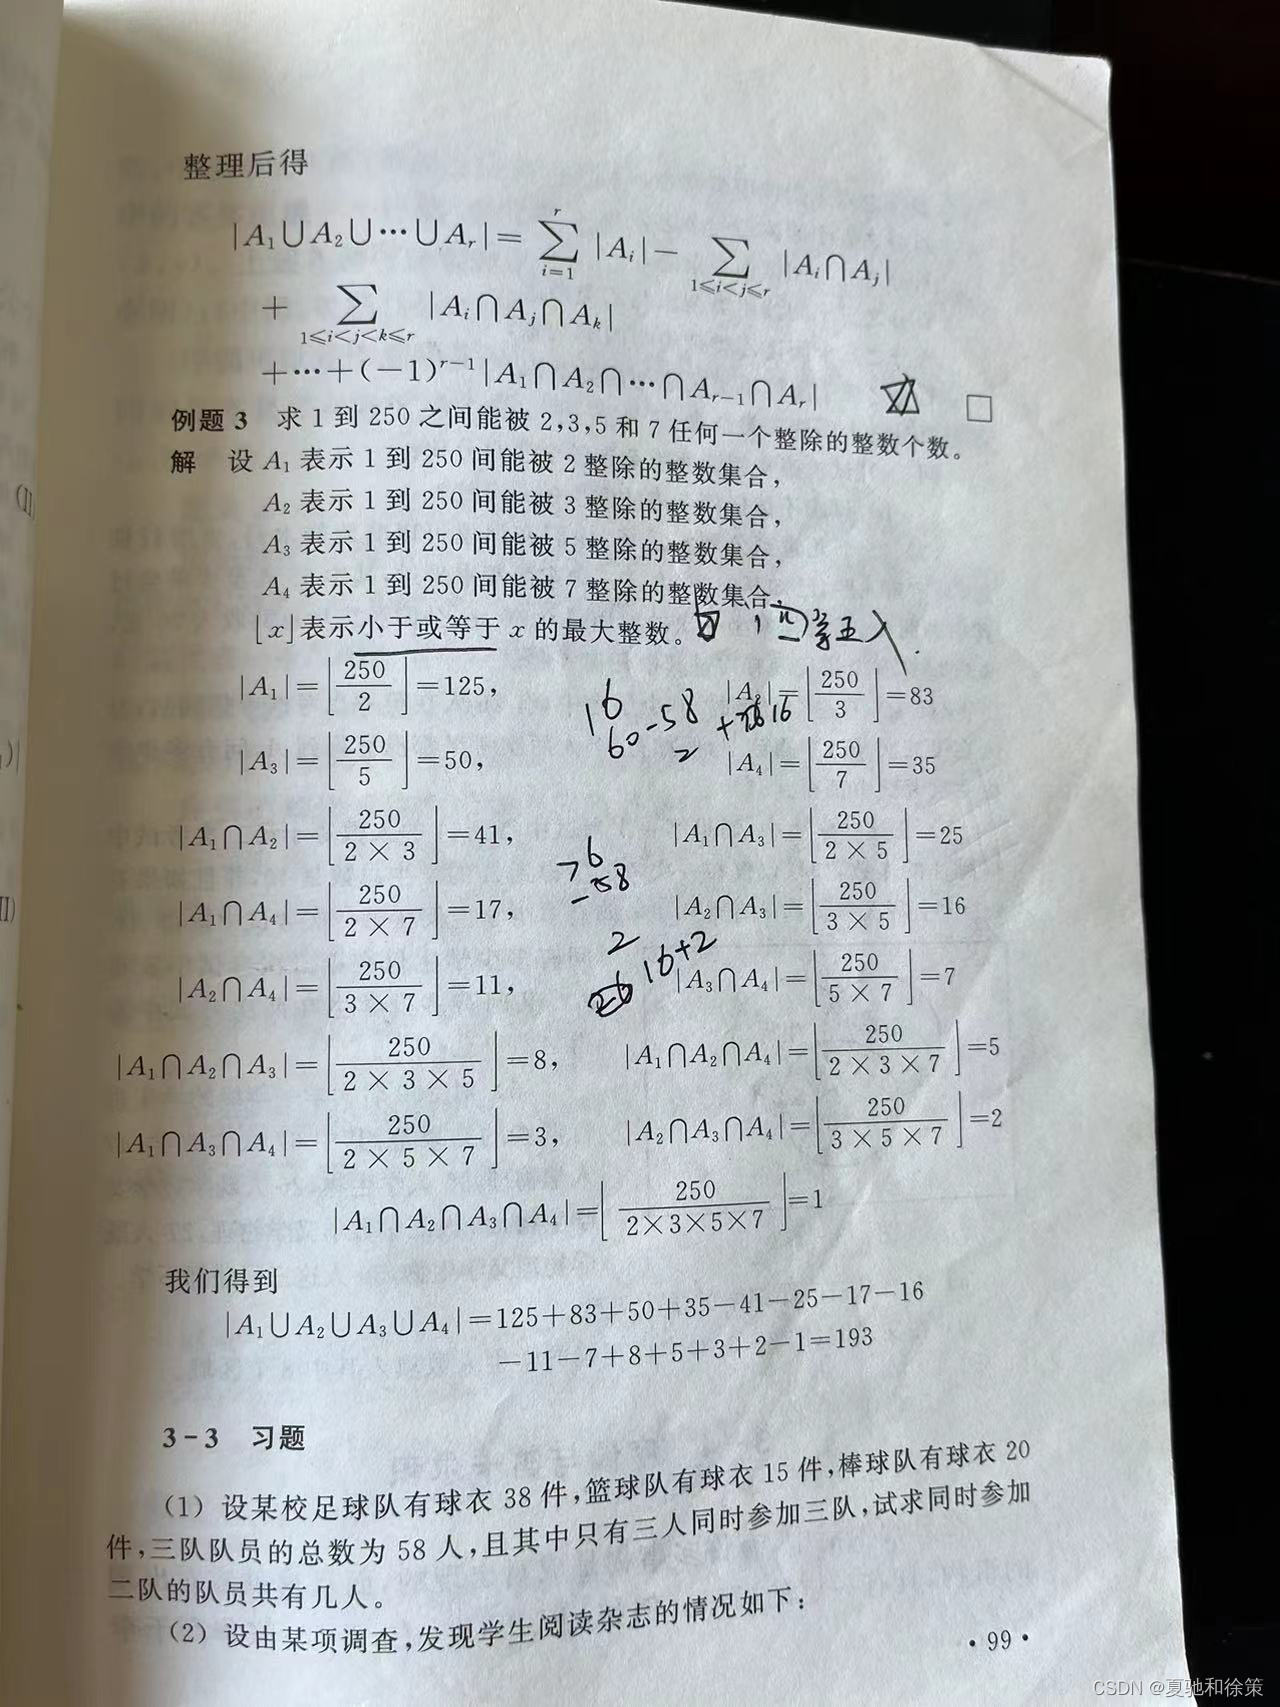 整理后得
|A₁∪A₂∪⋯∪Aᵣ|=∑ᵢ₌₁ʳ|Aᵢ|−∑₁≤ᵢ<ⱼ≤ᵣ|Aᵢ∩Aⱼ|
+∑₁≤ᵢ<ⱼ<ₖ≤ᵣ|Aᵢ∩Aⱼ∩Aₖ|
+⋯+(−1)ʳ⁻¹|A₁∩A₂∩⋯∩Aᵣ₋₁∩Aᵣ| □
例题 3 求 1 到 250 之间能被 2,3,5 和 7 任何一个整除的整数个数。
解 设 A₁ 表示 1 到 250 间能被 2 整除的整数集合,
A₂ 表示 1 到 250 间能被 3 整除的整数集合,
A₃ 表示 1 到 250 间能被 5 整除的整数集合,
A₄ 表示 1 到 250 间能被 7 整除的整数集合,
⌊x⌋表示小于或等于 x 的最大整数。
|A₁|=⌊250/2⌋=125, |A₂|=⌊250/3⌋=83
16
60-58 +16
2
|A₃|=⌊250/5⌋=50, |A₄|=⌊250/7⌋=35
|A₁∩A₂|=⌊250/(2×3)⌋=41, |A₁∩A₃|=⌊250/(2×5)⌋=25
76
-58
|A₁∩A₄|=⌊250/(2×7)⌋=17, |A₂∩A₃|=⌊250/(3×5)⌋=16
2
16+2
|A₂∩A₄|=⌊250/(3×7)⌋=11, |A₃∩A₄|=⌊250/(5×7)⌋=7
|A₁∩A₂∩A₃|=⌊250/(2×3×5)⌋=8, |A₁∩A₂∩A₄|=⌊250/(2×3×7)⌋=5
|A₁∩A₃∩A₄|=⌊250/(2×5×7)⌋=3, |A₂∩A₃∩A₄|=⌊250/(3×5×7)⌋=2
|A₁∩A₂∩A₃∩A₄|=⌊250/(2×3×5×7)⌋=1
我们得到
|A₁∪A₂∪A₃∪A₄|=125+83+50+35−41−25−17−16
−11−7+8+5+3+2−1=193
3-3 习题
(1) 设某校足球队有球衣 38 件,篮球队有球衣 15 件,棒球队有球衣 20
件,三队队员的总数为 58 人,且其中只有三人同时参加三队,试求同时参加
二队的队员共有几人。
(2) 设由某项调查,发现学生阅读杂志的情况如下:
·99·
CSDN @夏驰和徐策